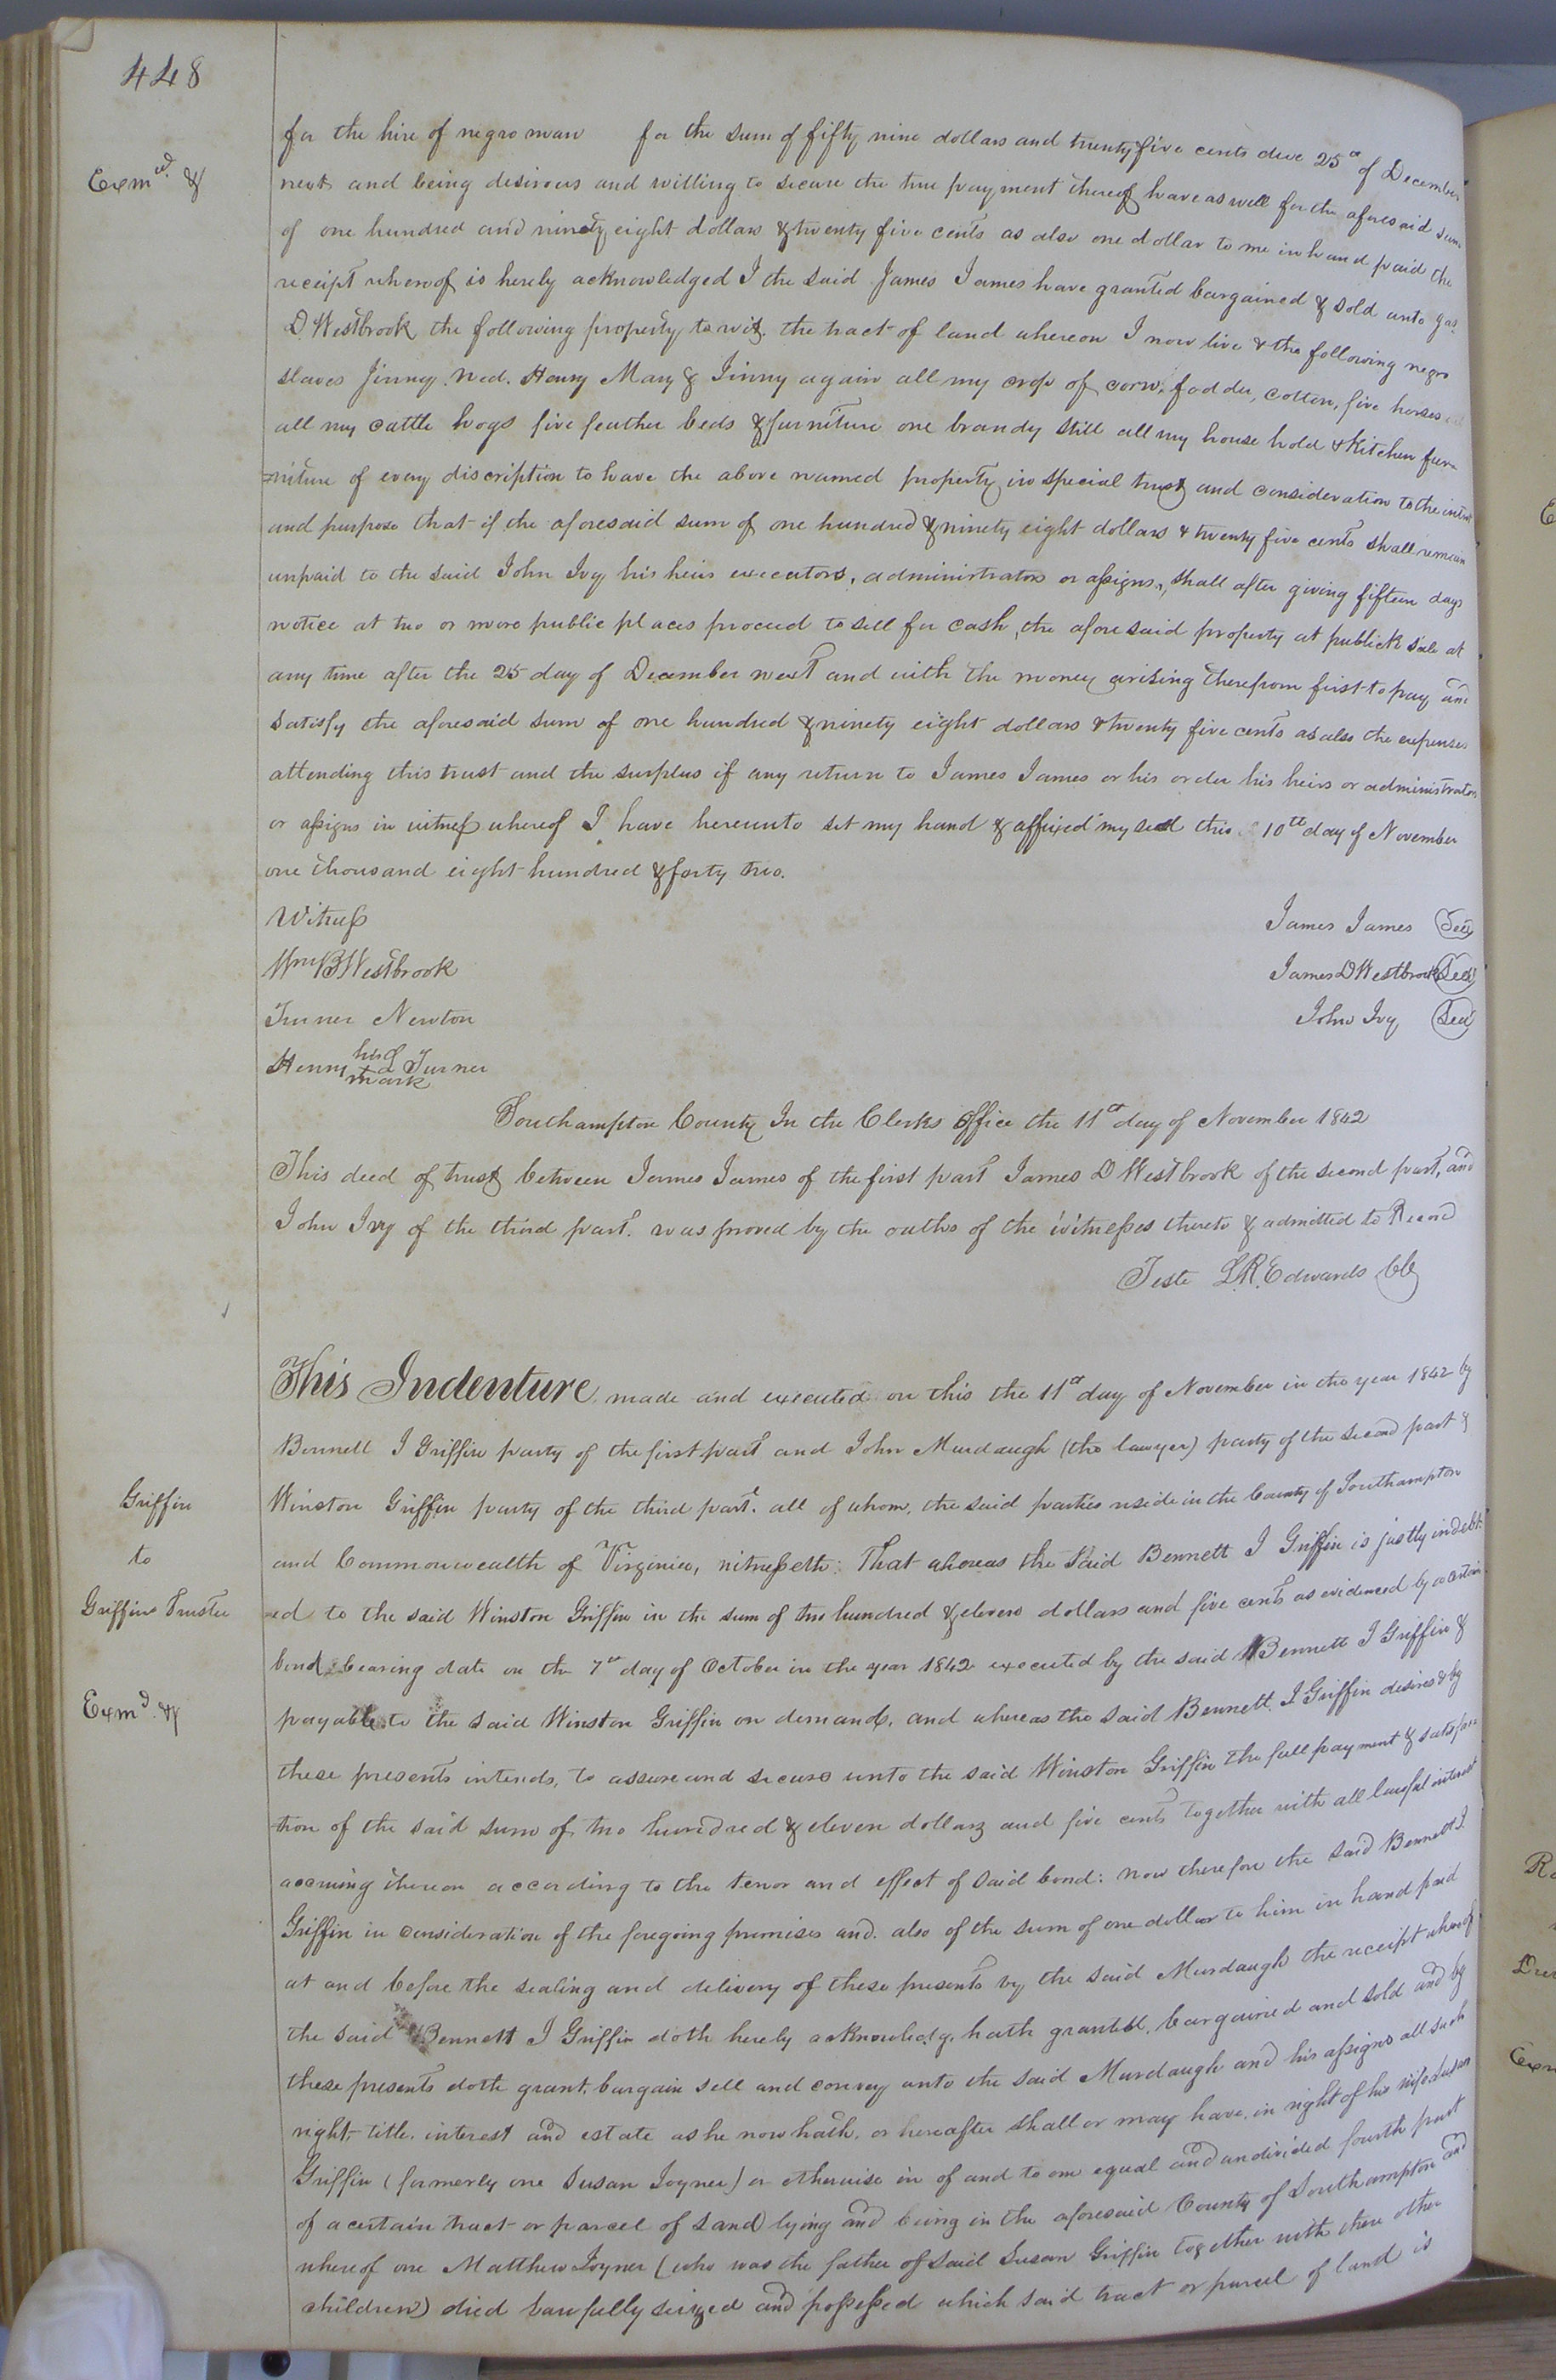 448
for the hire of negro man for the sum of fifty nine dollars and twenty five cents due 25th of December
Exmd &
next and being desirous and willing to secure the true payment thereof have as well for the aforesaid sum
of one hundred and ninety eight dollars & twenty five cents as also one dollar to me in hand paid the
receipt whereof is hereby acknowledged I the said James James have granted bargained & sold unto Jas
D Westbrook the following property to wit. the tract of land whereon I now live & the following negro
slaves Jinny Ned. Henry Mary & Jinny again all my crop of corn, fodder, cotton, five horses
all my cattle hogs five feather beds & furniture one brandy still all my house hold & Kitchen fur=
=niture of every discription to have the above named property in special trust and consideration to the intent
and purpose that if the aforesaid sum of one hundred & ninety eight dollars & twenty five cents shall remain
unpaid to the said John Ivy his heirs executors, administrators or assigns, shall after giving fifteen days
notice at two or more public places proceed to sell for cash, the aforesaid property at publick sale at
any time after the 25 day of December next and with the money arising therefrom first to pay and
satisfy the aforesaid sum of one hundred & ninety eight dollars & twenty five cents as also the expenses
attending this trust and the surplus if any return to James James or his order his heirs or administrators
or assigns in witness whereof I have hereunto set my hand & affixed my seal this 10th day of November
one thousand eight hundred & forty two.
Witness James James Seal
Wm B Westbrook James D Westbrook Seal
Turner Newton John Ivy Seal
Henry his + mark Turner
Southampton County In the Clerks Office the 11th day of November 1842
This deed of trust between James James of the first part James D Westbrook of the second part, and
John Ivy of the third part. was proved by the oaths of the witnesses thereto & admitted to Record
Teste L.R. Edwards CC
This Indenture made and executed on this the 11th day of November in the year 1842 by
Bennett J Griffin party of the first part and John Murdaugh (the lawyer) party of the second part &
Griffin
Winston Griffin party of the third part. all of whom, the said parties reside in the County of Southampton
to
and Commonwealth of Virginia, witnesseth: That whereas the said Bennett J Griffin is justly indebt=
Griffins Trustee
=ed to the said Winston Griffin in the sum of two hundred & eleven dollars and five cents as evidenced by a certain
bond bearing date on the 7th day of October in the year 1842 executed by the said Bennett J Griffin &
Exmd &
payable to the said Winston Griffin on demand, and whereas the said Bennett J Griffin desires & by
these presents intends, to assure and secure unto the said Winston Griffin the full payment & satisfac=
=tion of the said sum of two hundred & eleven dollars and five cents together with all lawful interest
accruing thereon according to the tenor and effect of said bond: now therefore the said Bennett J.
Griffin in consideration of the foregoing premises and also of the sum of one dollar to him in hand paid
at and before the sealing and delivery of these presents by the said Murdaugh the receipt whereof
the said Bennett J Griffin doth hereby acknowledge, hath granted, bargained and sold and by
these presents doth grant, bargain sell and convey unto the said Murdaugh and his assigns all such
right, title, interest and estate as he now hath, or hereafter shall or may have, in right of his wife Susan
Griffin (formerly one Susan Joyner) or otherwise in of and to one equal and undivided fourth part
of a certain tract or parcel of Land lying and being in the aforesaid County of Southampton and
whereof one Matthew Joyner (who was the father of said Susan Griffin together with three other
children) died lawfully seized and possessed which said tract or parcel of land is